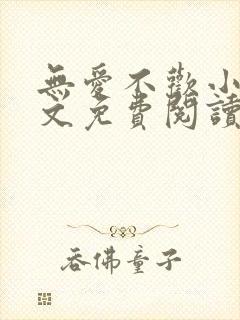 無愛不歡小
文免費閱讀
吞佛童子